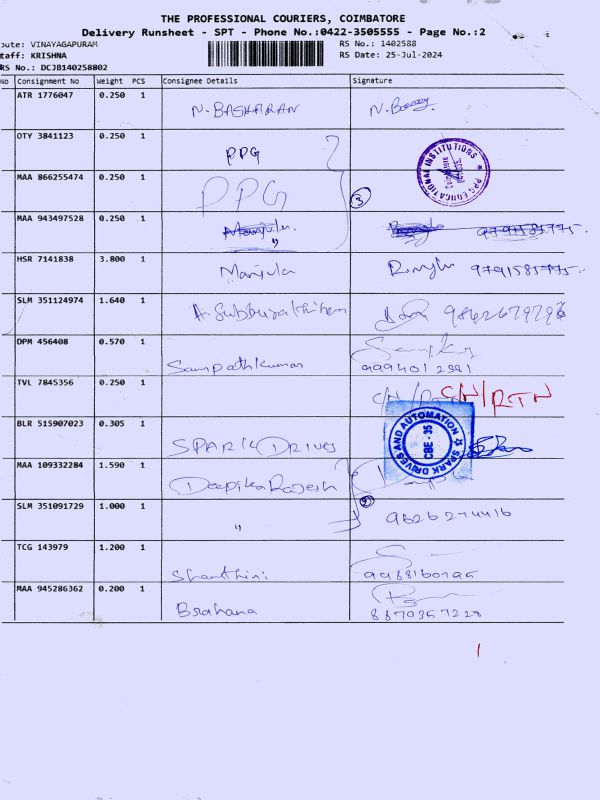 THE PROFESSIONAL COURIERS, COIMBATORE
Delivery Runsheet - SPT - Phone No.:0422-3505555 - Page No.:2
oute: VINAYAGAPURAM RS No.: 1402588
taff: KRISHNA RS Date: 25-Jul-2024
RS No.: DCJB140258802
No Consignment No Weight PCS Consignee Details Signature
ATR 1776047 0.250 1 N. BASKARAN
OTY 3841123 0.250 1 PPG
PPG EDUCATIONAL INSTITUTIONS
MAA 866255474 0.250 1 PPG
3
MAA 943497528 0.250 1 Manjula 9791585775
HSR 7141838 3.800 1 Manjula 9791585775
SLM 351124974 1.640 1
DPM 456408 0.570 1 Sampathkumar
TVL 7845356 0.250 1 C/N/RTN
BLR 515907023 0.305 1 SPARK DRIVES
SPARK DRIVES AND AUTOMATION
CBE - 35
MAA 109332284 1.590 1 Deepika Rajesh
SLM 351091729 1.000 1 " 9626274416
TCG 143979 1.200 1 Shanthini
MAA 945286362 0.200 1 Brahana